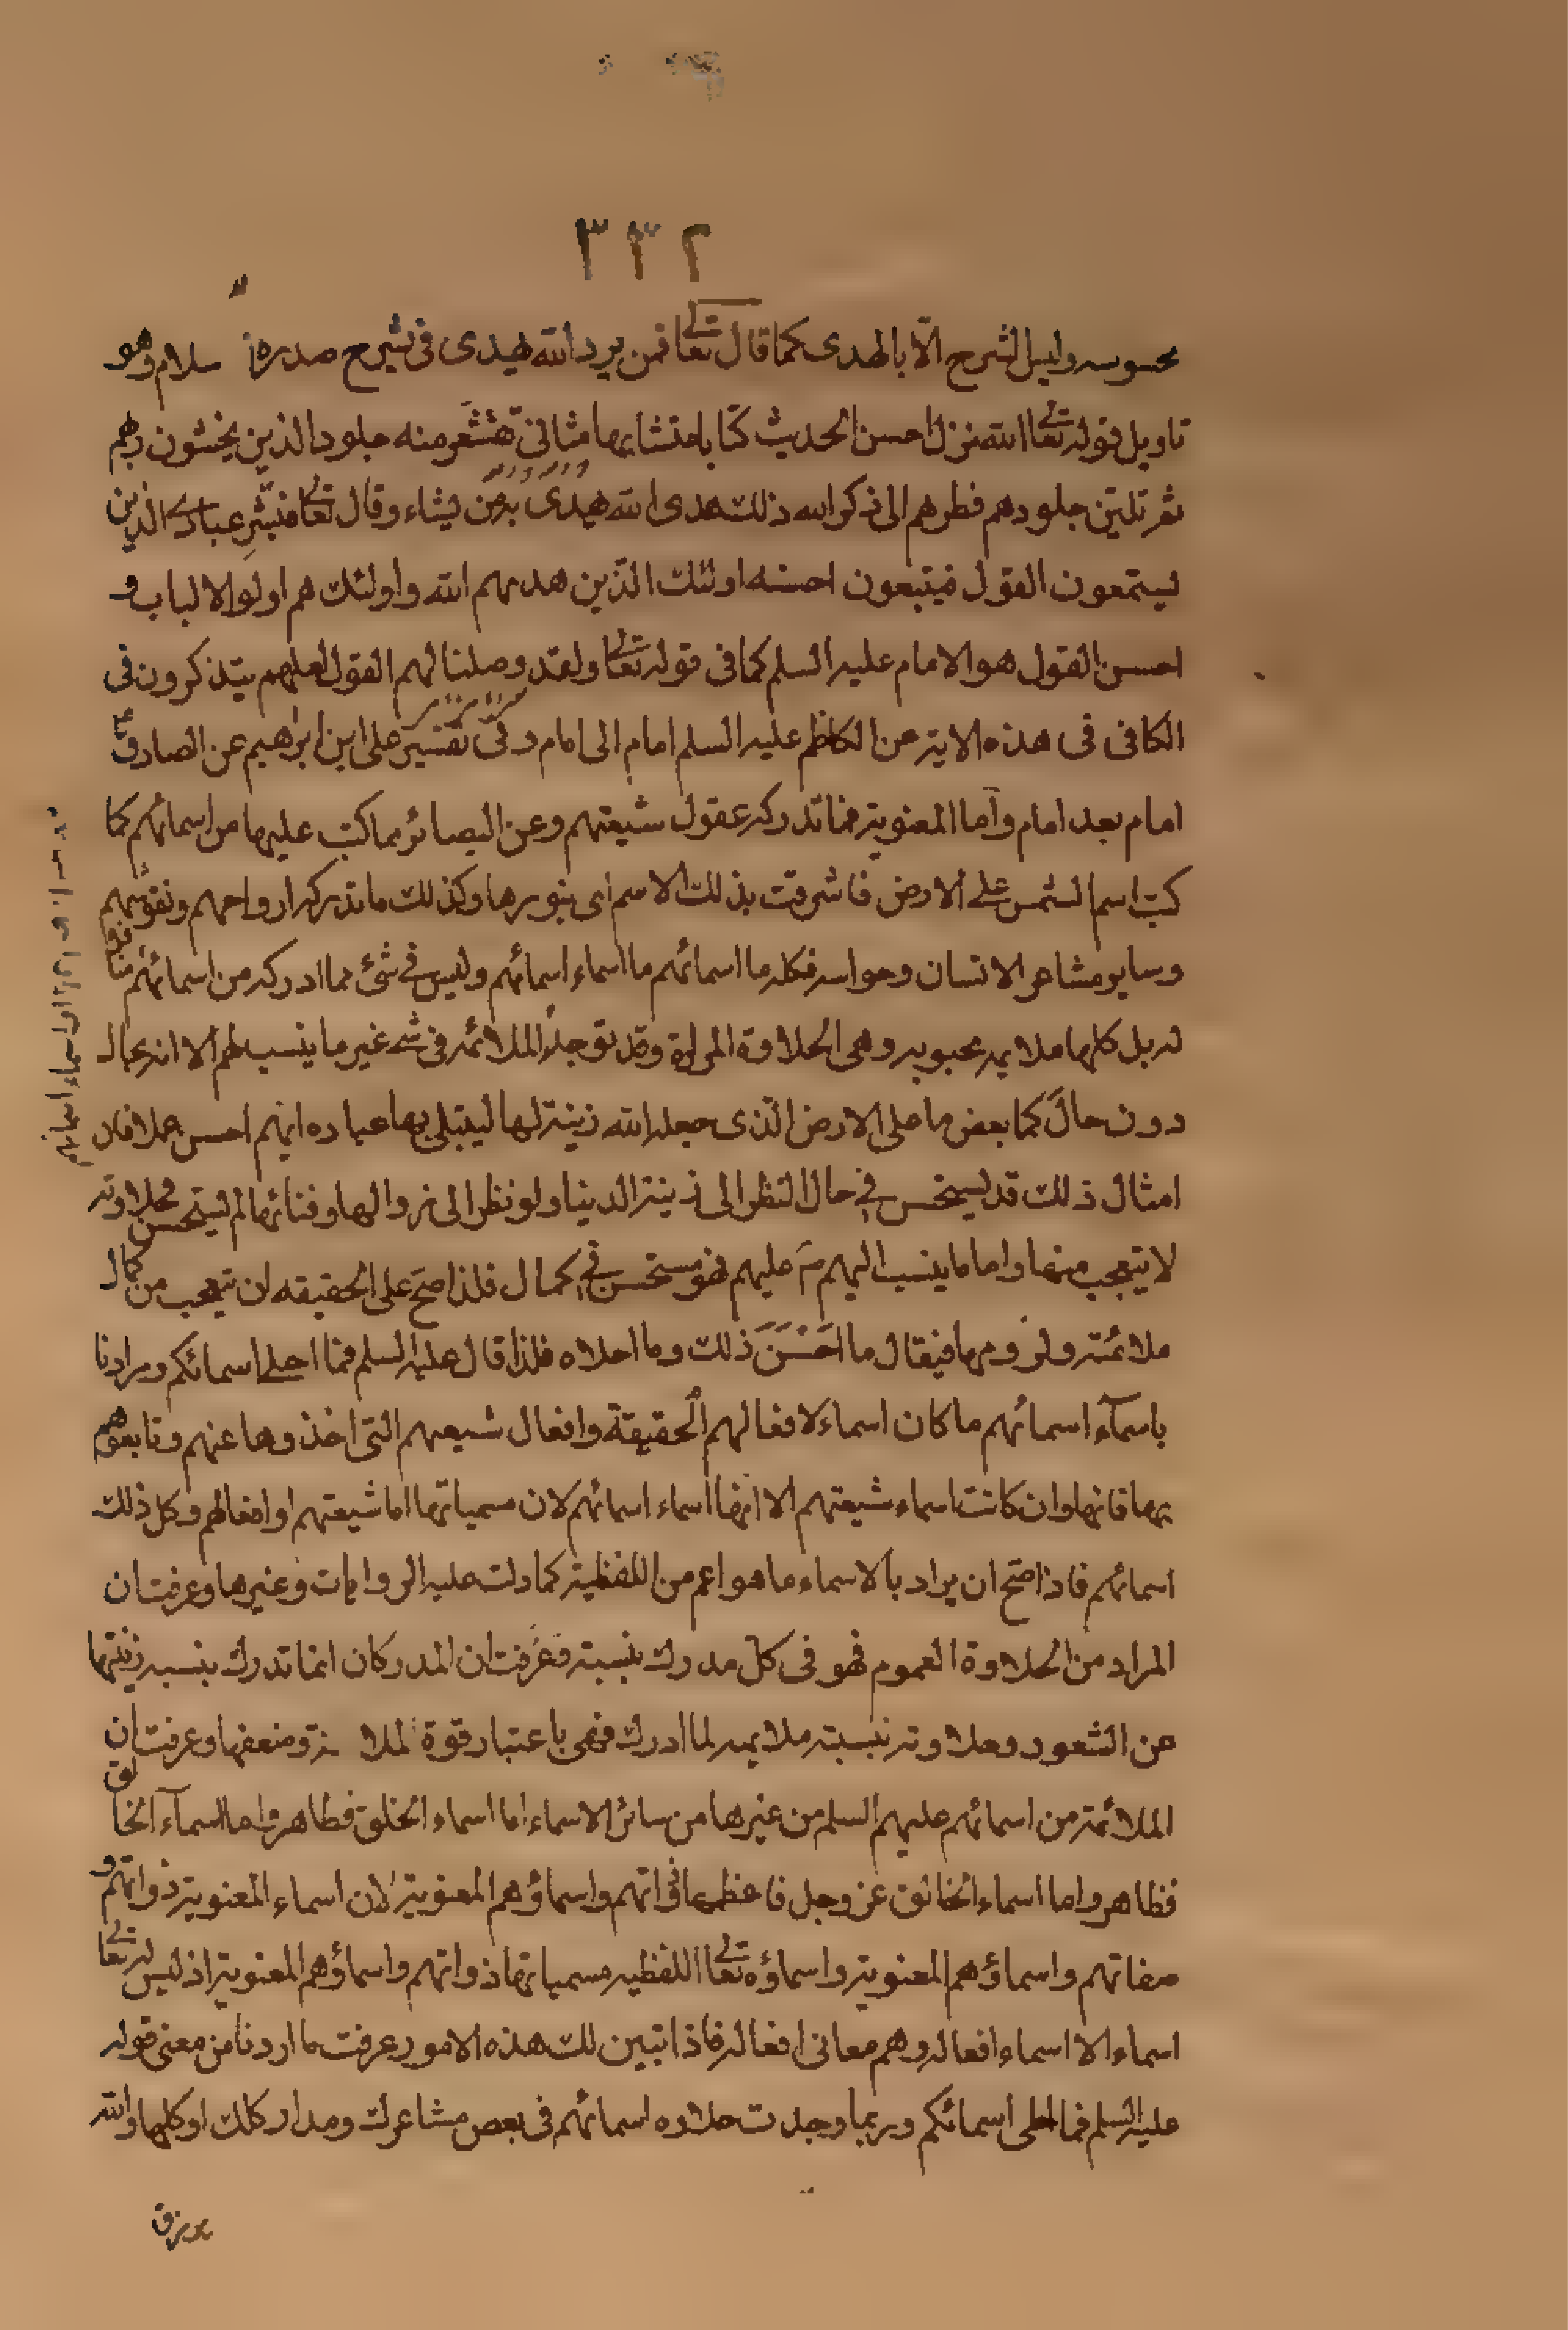 ٣٣٢
محسوسه وليس الشرح الّا بالهدى كما قال تعالى فمن يرد الله يهدى فى يشرح صدره سلام وهو
تاويل قوله تعالى الله نزل احسن الحديث كتابا متشابها مثانى تقشعر منه جلود الذين يخشون ربهم
ثم تلين جلودهم فطرهم الى ذكر الله ذلك هدى الله يهدى به من يشاء وقال تعالى فبشر عبادى الذين
يستمعون القول فيتبعون احسنه اولئك الذين هديهم الله واولئك هم اولوا الالباب و
احسن القول هو الامام عليه السلم كما فى قوله تعالى ولقد وصلنا لهم القول لعلهم يتذكرون فى
الكافى فى هذه الاية عن الكاظم عليه السلم امام الى امام وفى تفسير على ابن ابراهيم عن الصادق ع
امام بعد امام واما المعنوية فما تدركه عقول شيعتهم وعن البصائر مما كتب عليها من اسمائهم كما
كتب اسم الشمس على الارض فاشرقت بذلك الاسم اى بنورها وكذلك ما تدركه ارواحهم ونفوسهم
وساير مشاعر الانسان وحواسه فكله ما اسمائهم ما اسماء اسمائهم وليس فى شئ مما ادركه من اسمائهم منافر
له بل كلها ملايمه محبوبه وهى الحلاوة المرادة وقد توجد الملائمة فى شئ غير ما ينسب لهم الا انه بحال
دون حال كما بعض ما على الارض الذى جعله الله زينة لها ليبتلى بها عباده ايهم احسن عملا فان
امثال ذلك قد يستحسن فى حال النظر الى زينة الدنيا ولو نظر الى زوالها وفنائها لم يستحسن فحلاوته
لا يتعجب منها واما ما ينسب اليهم سَم عليهم فهو مستحسن فى كمال فلذا صح على الحقيقه ان يتعجب من كمال
ملائمته ولزومها فيقال ما احسن ذلك وما احلاه فلذا قال عليه السلم فما احلى اسمائكم ومرادنا
باسمآء اسمائهم ما كان اسماء لافعالهم الحقيقة وافعال شيعتهم التى اخذوها عنهم وتابعوهم
بها فانها وان كانت اسماء شيعتهم الا انها اسماء اسمائهم لان مسمياتها اما شيعتهم او افعالهم وكل ذلك
اسمائهم فاذا صح ان يراد بالاسماء ما هو اعم من اللفظية كما دلت عليه الروايات وغيرها وعرفت ان
المراد من الحلاوة العموم فهو فى كل مدرك بنسبته فعرفت ان المدركان انما تدرك بنسبه رتبتها
من الشعور وحلاوته بنسبة ملايمه لما ادرك فهى باعتبار قوة الملا ئمة وضعفها وعرفت ان
الملائمة من اسمائهم عليهم السلم من غيرها من سائر الاسماء اما اسماء الخلق فظاهر واما اسمآء الخالق
فظاهر واما اسماء الخالق عز وجل فاعظمها ذواتهم واسماؤهم المعنوية لان اسماء المعنوية ذواتهم و
صفاتهم واسماؤهم المعنوية واسماؤه تعالى اللفظيه مسمياتها ذواتهم واسماؤهم المعنوية اذ ليس له تعالى
اسماء الا اسماء افعاله وهم معانى افعاله فاذا تبين لك هذه الامور عرفت ما اردنا من معنى قوله
عليه السلم فما احلى اسمائكم وربما وجدت حلاوه اسمائهم فى بعض مشاعرك ومداركك او كلها والله
يرزق